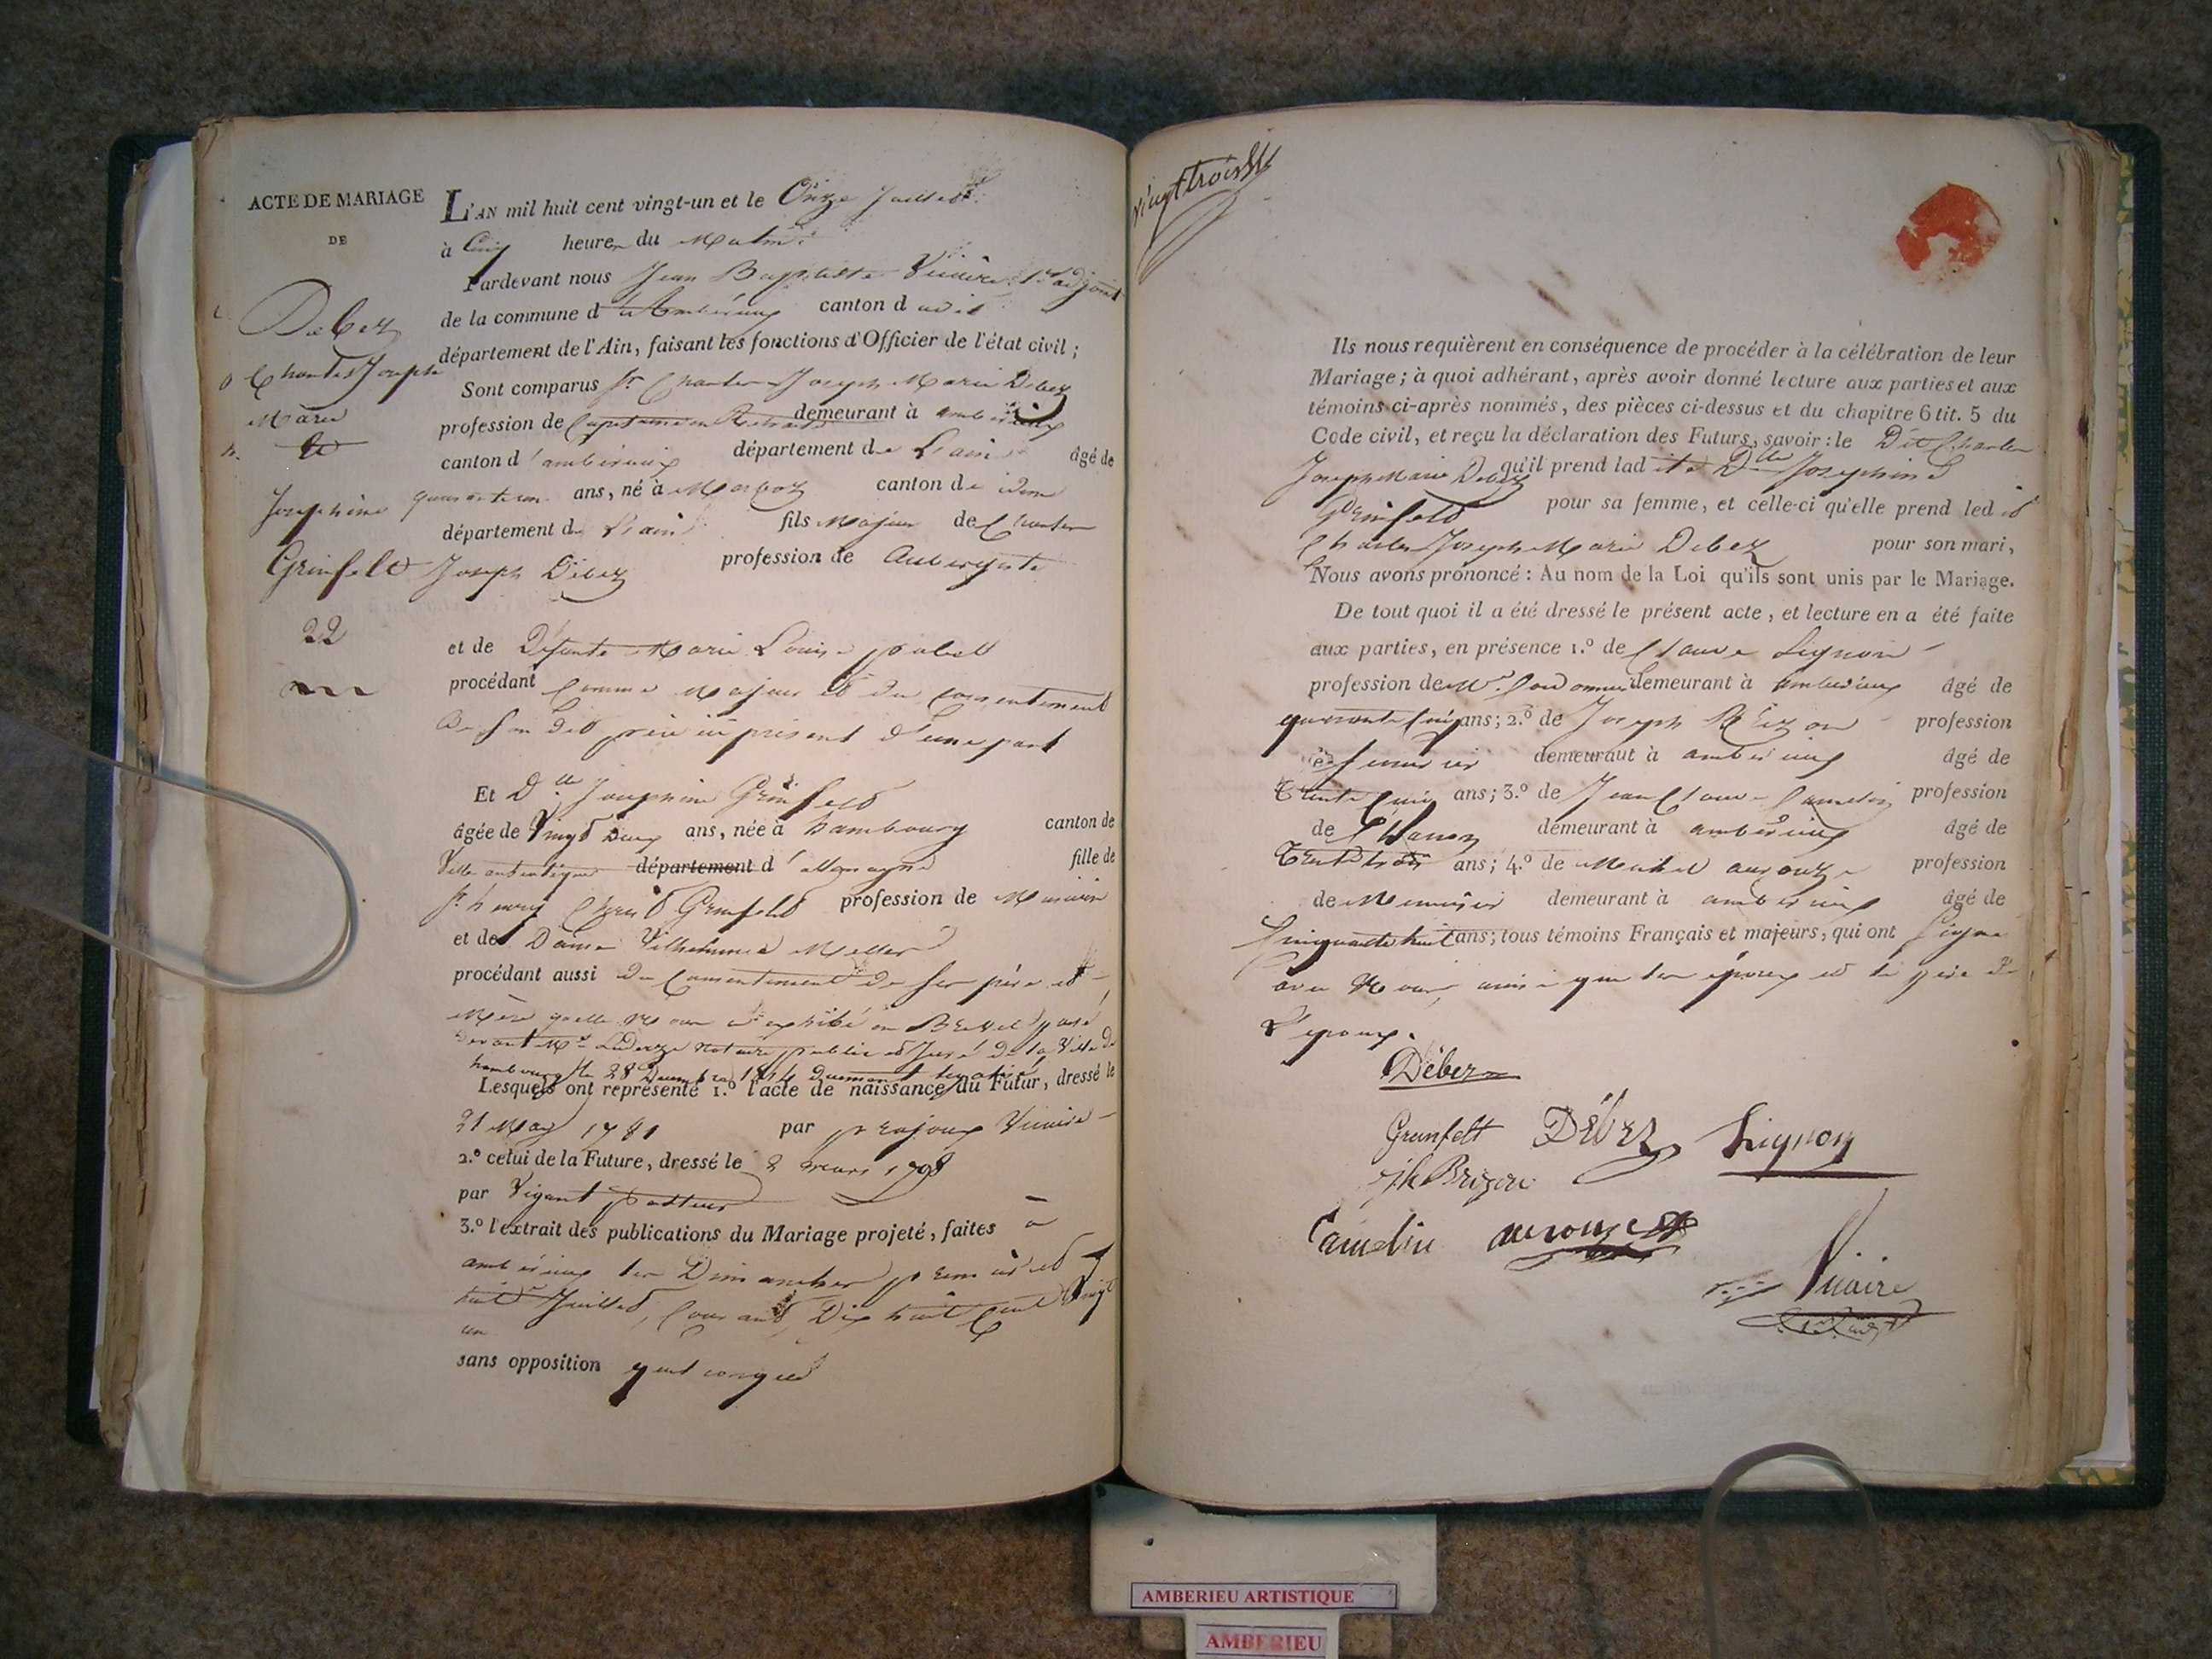 ACTE DE MARIAGE
DE
Debez
Charles Joseph
Marie
et
Josephine
Grinfeld
22
L'AN mil huit cent vingt-un et le Onze Juillet
à Cinq heures du Matin
Pardevant nous Jean Baptiste Vicaire 1er adjoint
de la commune d'Ambérieux canton dudit
département de l'Ain, faisant les fonctions d'Officier de l'état civil ;
Sont comparus Sr Charles Joseph Marie Debez
profession de Capitaine en Retraite demeurant à ambérieux
canton d'ambérieux département de L'ain âgé de
quarante un ans, né à Marboz canton de idem
département de L'ain fils Majeur de Charles
Joseph Debez profession de Aubergiste
et de Défunte Marie Louise
procédant Comme Majeur et du Consentement
de son dit père ici présent d'une part
Et Dlle Josephine Grinfeld
âgée de Vingt Deux ans, née à hambourg canton de
Ville département d'allemagne fille de
Sr henry Grinfeld profession de
et de Dame Vilhelmine Meller
procédant aussi du Consentement de ses père et
Mère qu'elle Nous a exhibé en Brevet passé
devant Me notaire public et Juré de la Ville de
hambourg le 28
Lesquels ont représenté 1.º l'acte de naissance du Futur, dressé le
21 May 1781 par Vicaire
2.º celui de la Future, dressé le 8 mars 1798
par Vigant pasteur
3.º l'extrait des publications du Mariage projeté, faites à
ambérieux les Dimanches premier et
huit Juillet, Courant, Dix huit Cent Vingt
un
sans opposition
vingt trois
Ils nous requièrent en conséquence de procéder à la célébration de leur
Mariage ; à quoi adhérant, après avoir donné lecture aux parties et aux
témoins ci-après nommés, des pièces ci-dessus et du chapitre 6 tit. 5 du
Code civil, et reçu la déclaration des Futurs, savoir : le Dit Charles
Joseph Marie Debez qu'il prend ladite Dlle Josephine
Grinfeld pour sa femme, et celle-ci qu'elle prend ledit
Charles Joseph Marie Debez pour son mari,
Nous avons prononcé : Au nom de la Loi qu'ils sont unis par le Mariage.
De tout quoi il a été dressé le présent acte, et lecture en a été faite
aux parties, en présence 1.º de Claude Lignon
profession de Md. Cordonnier demeurant à ambérieux âgé de
quarante cinq ans ; 2.º de Joseph Brizon profession
de demeurant à ambérieux âgé de
Trente Cinq ans ; 3.º de Jean Claude Camelin profession
de demeurant à ambérieux âgé de
Trente trois ans ; 4.º de Michel aurouze profession
de Menuisier demeurant à ambérieux âgé de
Cinquante huit ans ; tous témoins Français et majeurs, qui ont Signé
avec Nous, ainsi que les époux et le père de
L'époux.
Débez
Grunfelt Débez Lignon
Jh Brizon
Camelin aurouze
Vicaire
AMBERIEU ARTISTIQUE
AMBERIEU